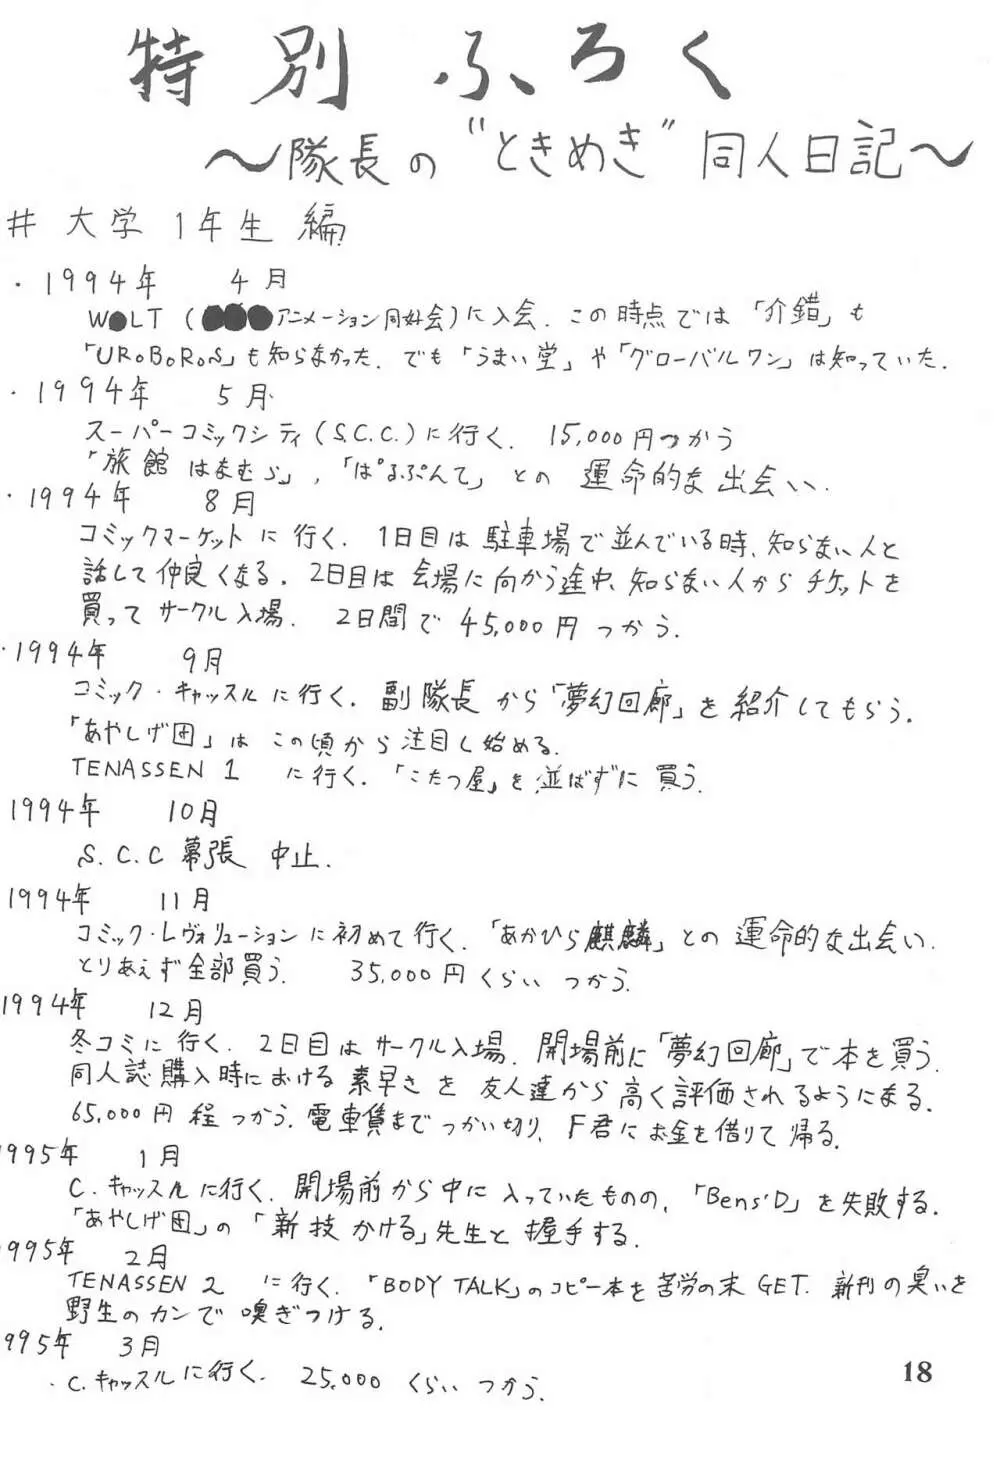 特別ふろく
〜隊長の“ときめき”同人日記〜
# 大学1年生 編
・1994年 4月
W●LT(●●●アニメーション同好会)に入会. この時点では「介錯」も
「UROBOROS」も知らなかった. でも「うまい堂」や「グローバルワン」は知っていた.
・1994年 5月
スーパーコミックシティ(S.C.C.)に行く. 15,000円つかう
「旅館はなむら」,「ぱるぷんて」との 運命的な出会い.
・1994年 8月
コミックマーケットに行く. 1日目は駐車場で並んでいる時、知らない人と
話して仲良くなる. 2日目は会場に向かう途中、知らない人からチケットを
買ってサークル入場. 2日間で45,000円つかう.
・1994年 9月
コミック・キャッスルに行く. 副隊長から「夢幻回廊」を紹介してもらう.
「あやしげ団」はこの頃から注目し始める.
TENASSEN 1 に行く.「こたつ屋」を並ばずに買う.
1994年 10月
S.C.C 幕張 中止.
1994年 11月
コミック・レヴォリューションに初めて行く.「あかひら麒麟」との運命的な出会い.
とりあえず全部買う. 35,000円くらい つかう.
1994年 12月
冬コミに行く. 2日目はサークル入場. 開場前に「夢幻回廊」で本を買う.
同人誌購入時における素早さを友人達から高く評価されるようになる.
65,000円程つかう. 電車賃までつかい切り、F君にお金を借りて帰る.
1995年 1月
C.キャッスルに行く. 開場前から中に入っていたものの、「Bens'D」を失敗する.
「あやしげ団」の「新技かける」先生と握手する.
995年 2月
TENASSEN 2 に行く.「BODY TALK」のコピー本を苦労の末GET. 新刊の臭いを
野生のカンで嗅ぎつける.
995年 3月
・C.キャッスルに行く. 25,000くらい つかう.
18